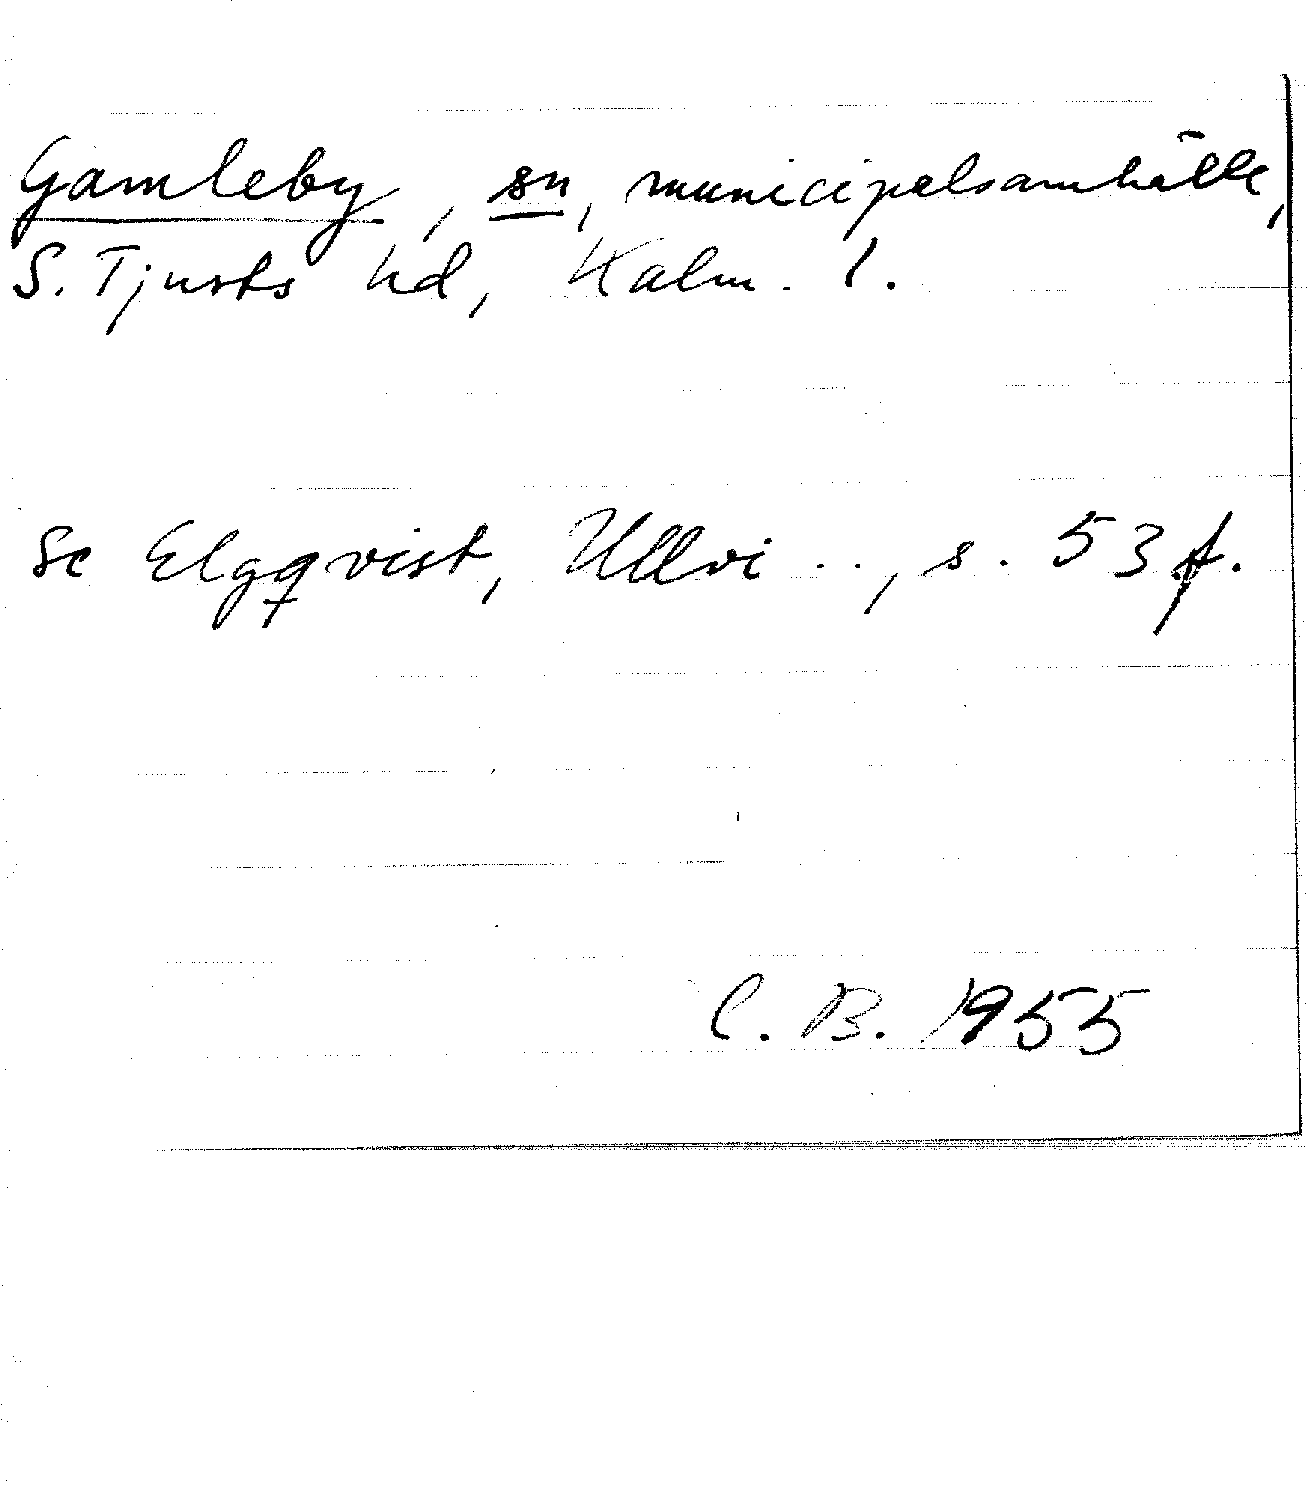 Gamleby, sn, municipalsamhälle,
S. Tjusts hd, Kalm. l.
Se Elgqvist, Ullvi .., s. 53 f.
C. B. 1955